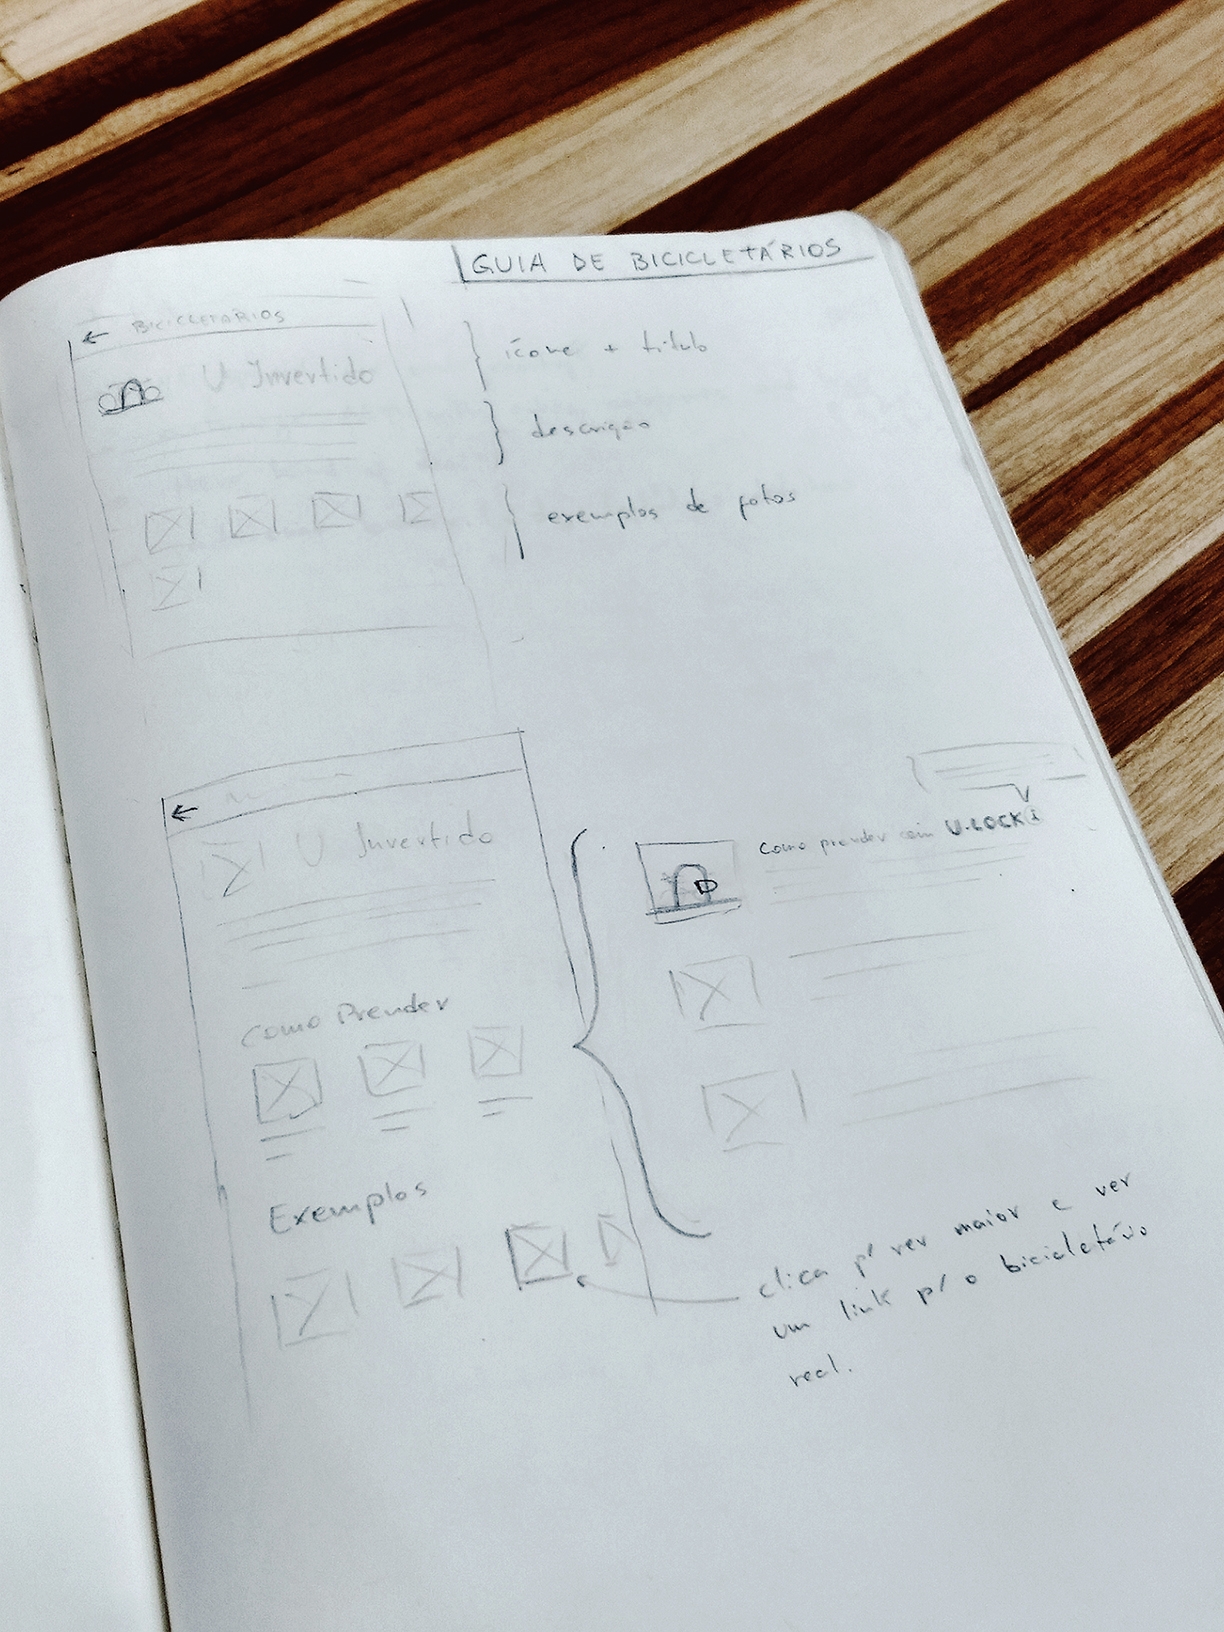 GUIA DE BICICLETÁRIOS
← BICICLETÁRIOS
U Invertido
ícone + título
descrição
exemplos de fotos
←
U Invertido
Como Prender
Exemplos
Como prender com U-LOCK i
clica p/ ver maior e ver
um link p/ o bicicletário
real.